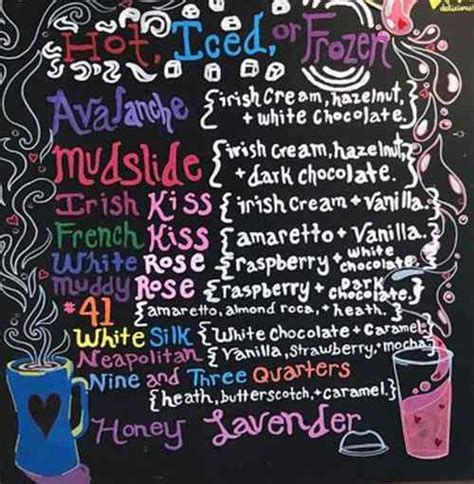 delicious
Hot, Iced, or Frozen
Avalanche {irish cream, hazelnut,
+ white chocolate.
Mudslide {irish cream, hazelnut,
+ dark chocolate.
Irish Kiss {irish cream + vanilla.
French Kiss {amaretto + Vanilla.
White Rose {raspberry + white chocolate.
muddy Rose {raspberry + DARK chocolate.
#41 {amaretto, almond roca, + heath.}
White Silk {White chocolate + Caramel.}
Neapolitan {Vanilla, Strawberry, + mocha}
Nine and Three Quarters
{heath, butterscotch, + caramel.}
Honey Lavender